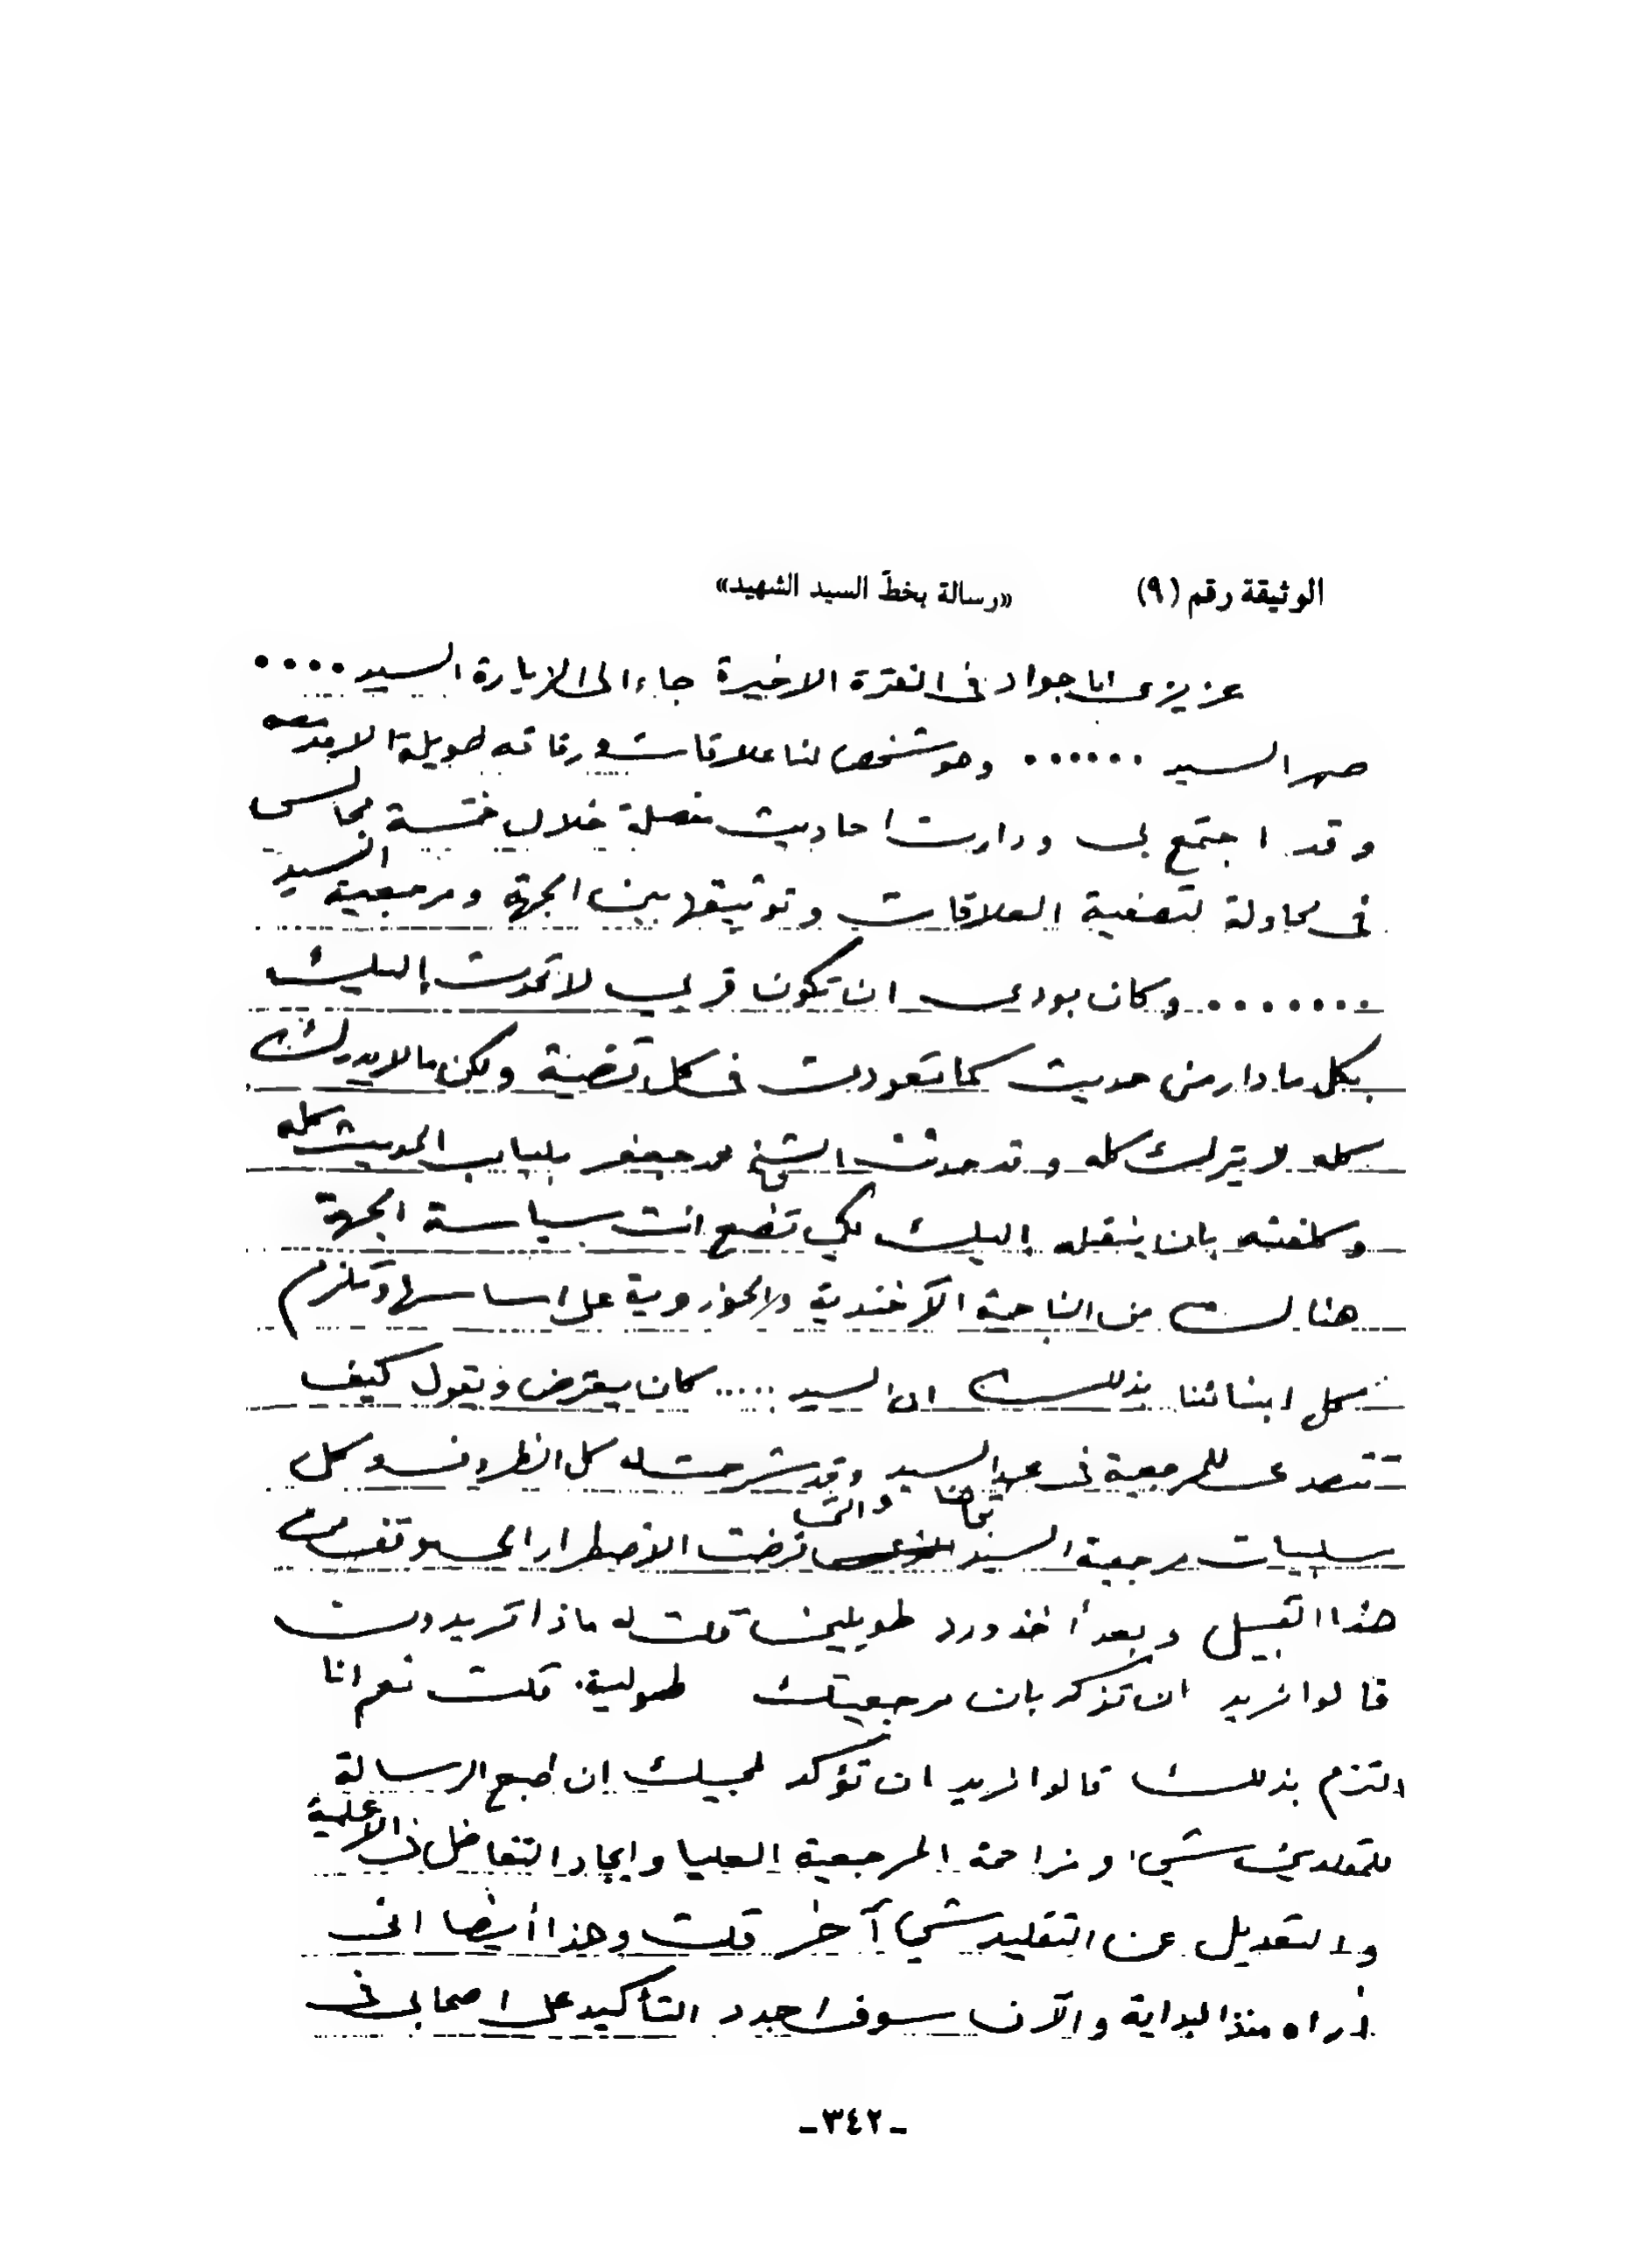 الوثيقة رقم (٩) «رسالة بخطّ السيد الشهيد»
عزيزي ابا جواد في الفترة الاخيرة جاء الى الزيارة السيد ....
صهر السيد ...... وهو شخص لنا علاقات ورفاقه طويلة الامد معه
وقد اجتمع بي ودارت احاديث مفصلة خلال خمسة مجالس
في محاولة لتصفية العلاقات وتوثيقها بين الجهة ومرجعية السيد
....... وكان بودي ان تكون قربي لاتحدث إليك
بكل ما دار من حديث كما تعودت في كل قضية ولكن ما لا يدرك
كله لا يترك كله وقد حدثت الشيخ محمد جعفر بلباب الحديث كله
وكلفته بان ينقله إليك لكي تضع انت سياسة الجهة
هنالك من الناحية الآخندية والحوزوية على اساسها وتلزم
كل ابنائنا بذلك ان السيد ..... كان يعترض ويقول كيف
تتصدى للمرجعية في عهد السيد وقد شرحت له كل الظروف وكل
سلبيات مرجعية السيد تجاهنا والتي فرضت الاضطرار الى موقف من
هذا القبيل وبعد أخذ ورد طويلين قلت له ماذا تريدون
قالوا نريد ان تذكر بان مرجعيتك طولية. قلت نعم انا
التزم بذلك قالوا نريد ان تؤكد لمحبيك ان طبع الرسالة
للمقلدين شيء ومزاحمة المرجعية العليا وايجاد التفاضل في الاعلمية
والتعديل عن التقليد شيء آخر قلت وهذا أيضا انى
أراه منذ البداية والآن سوف اجدد التأكيد على اصحابي في
ـ٣٤٢ـ